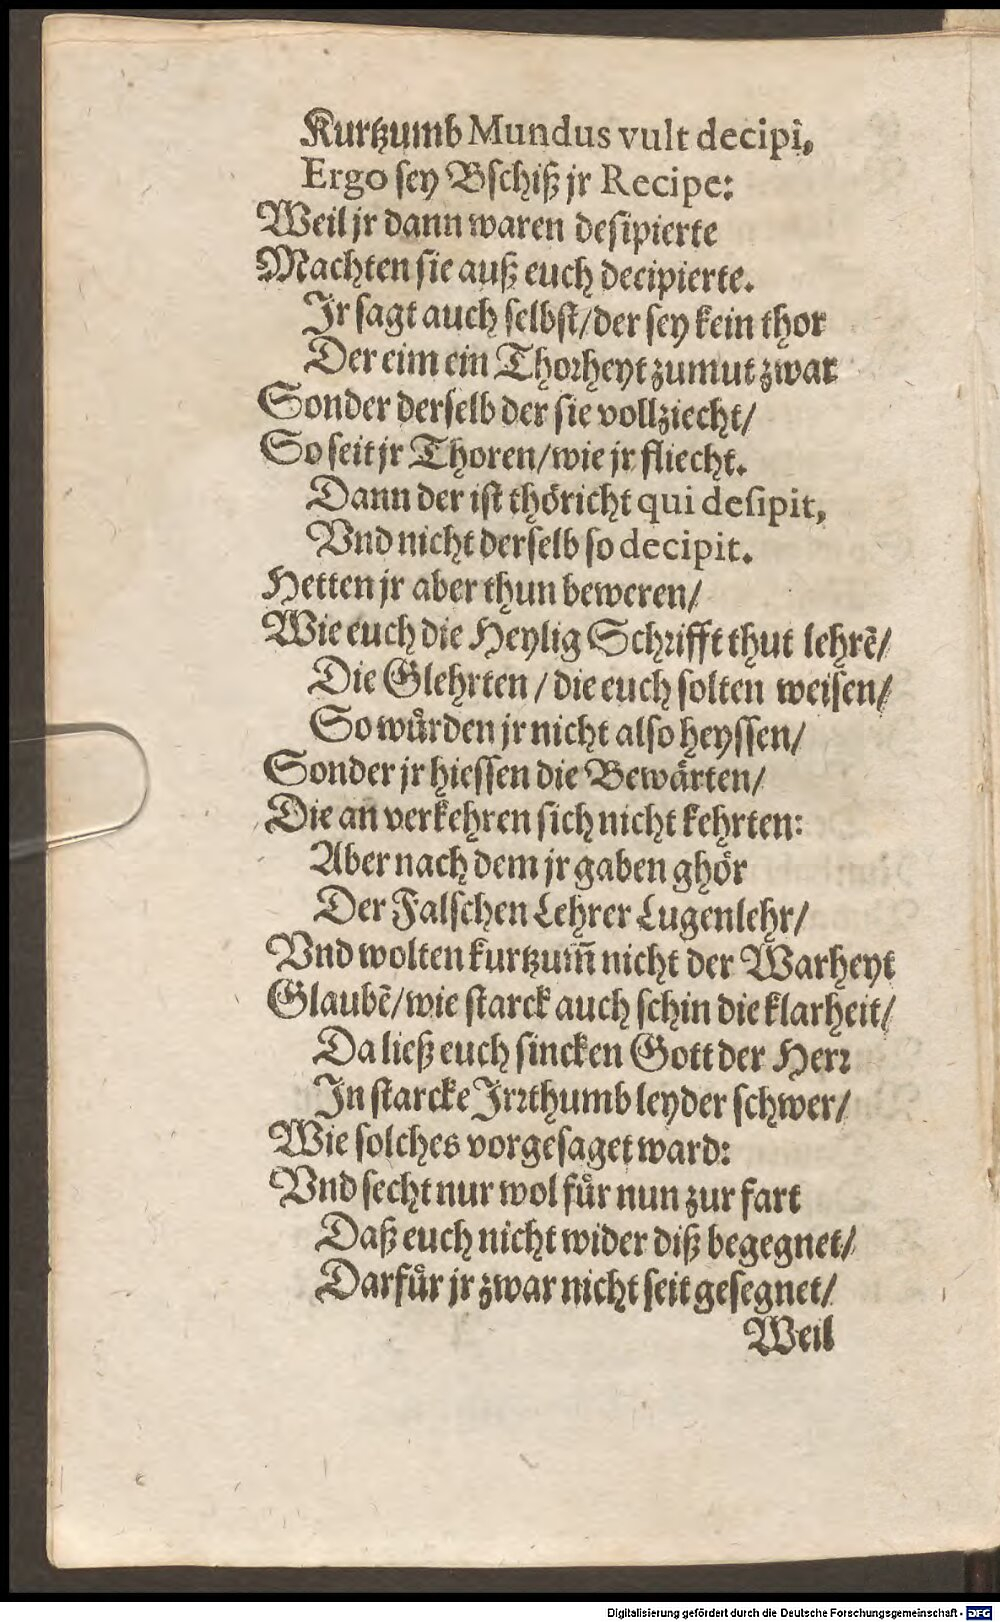 Kurtzumb Mundus vult decipi,
Ergo sey Bschiß jr Recipe:
Weil jr dann waren desipierte
Machten sie auß euch decipierte.
Jr sagt auch selbst/der sey kein thor
Der eim ein Thorheyt zumut zwar
Sonder derselb der sie vollziecht/
So seit jr Thoren/wie jr fliecht.
Dann der ist thöricht qui desipit,
Vnd nicht derselb so decipit.
Hetten jr aber thun beweren/
Wie euch die Heylig Schrifft thut lehrẽ/
Die Glehrten / die euch solten weisen/
So würden jr nicht also heyssen/
Sonder jr hiessen die Bewärten/
Die an verkehren sich nicht kehrten:
Aber nach dem jr gaben ghör
Der Falschen Lehrer Lugenlehr/
Vnd wolten kurtzum̃ nicht der Warheyt
Glaubẽ/wie starck auch schin die klarheit/
Da ließ euch sincken Gott der Herr
In starcke Irrthumb leyder schwer/
Wie solches vorgesaget ward:
Vnd secht nur wol für nun zur fart
Daß euch nicht wider diß begegnet/
Darfür jr zwar nicht seit gesegnet/
Weil
Digitalisierung gefördert durch die Deutsche Forschungsgemeinschaft - DFG